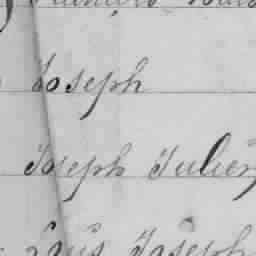 Joseph
Joseph Julien
Louis Joseph